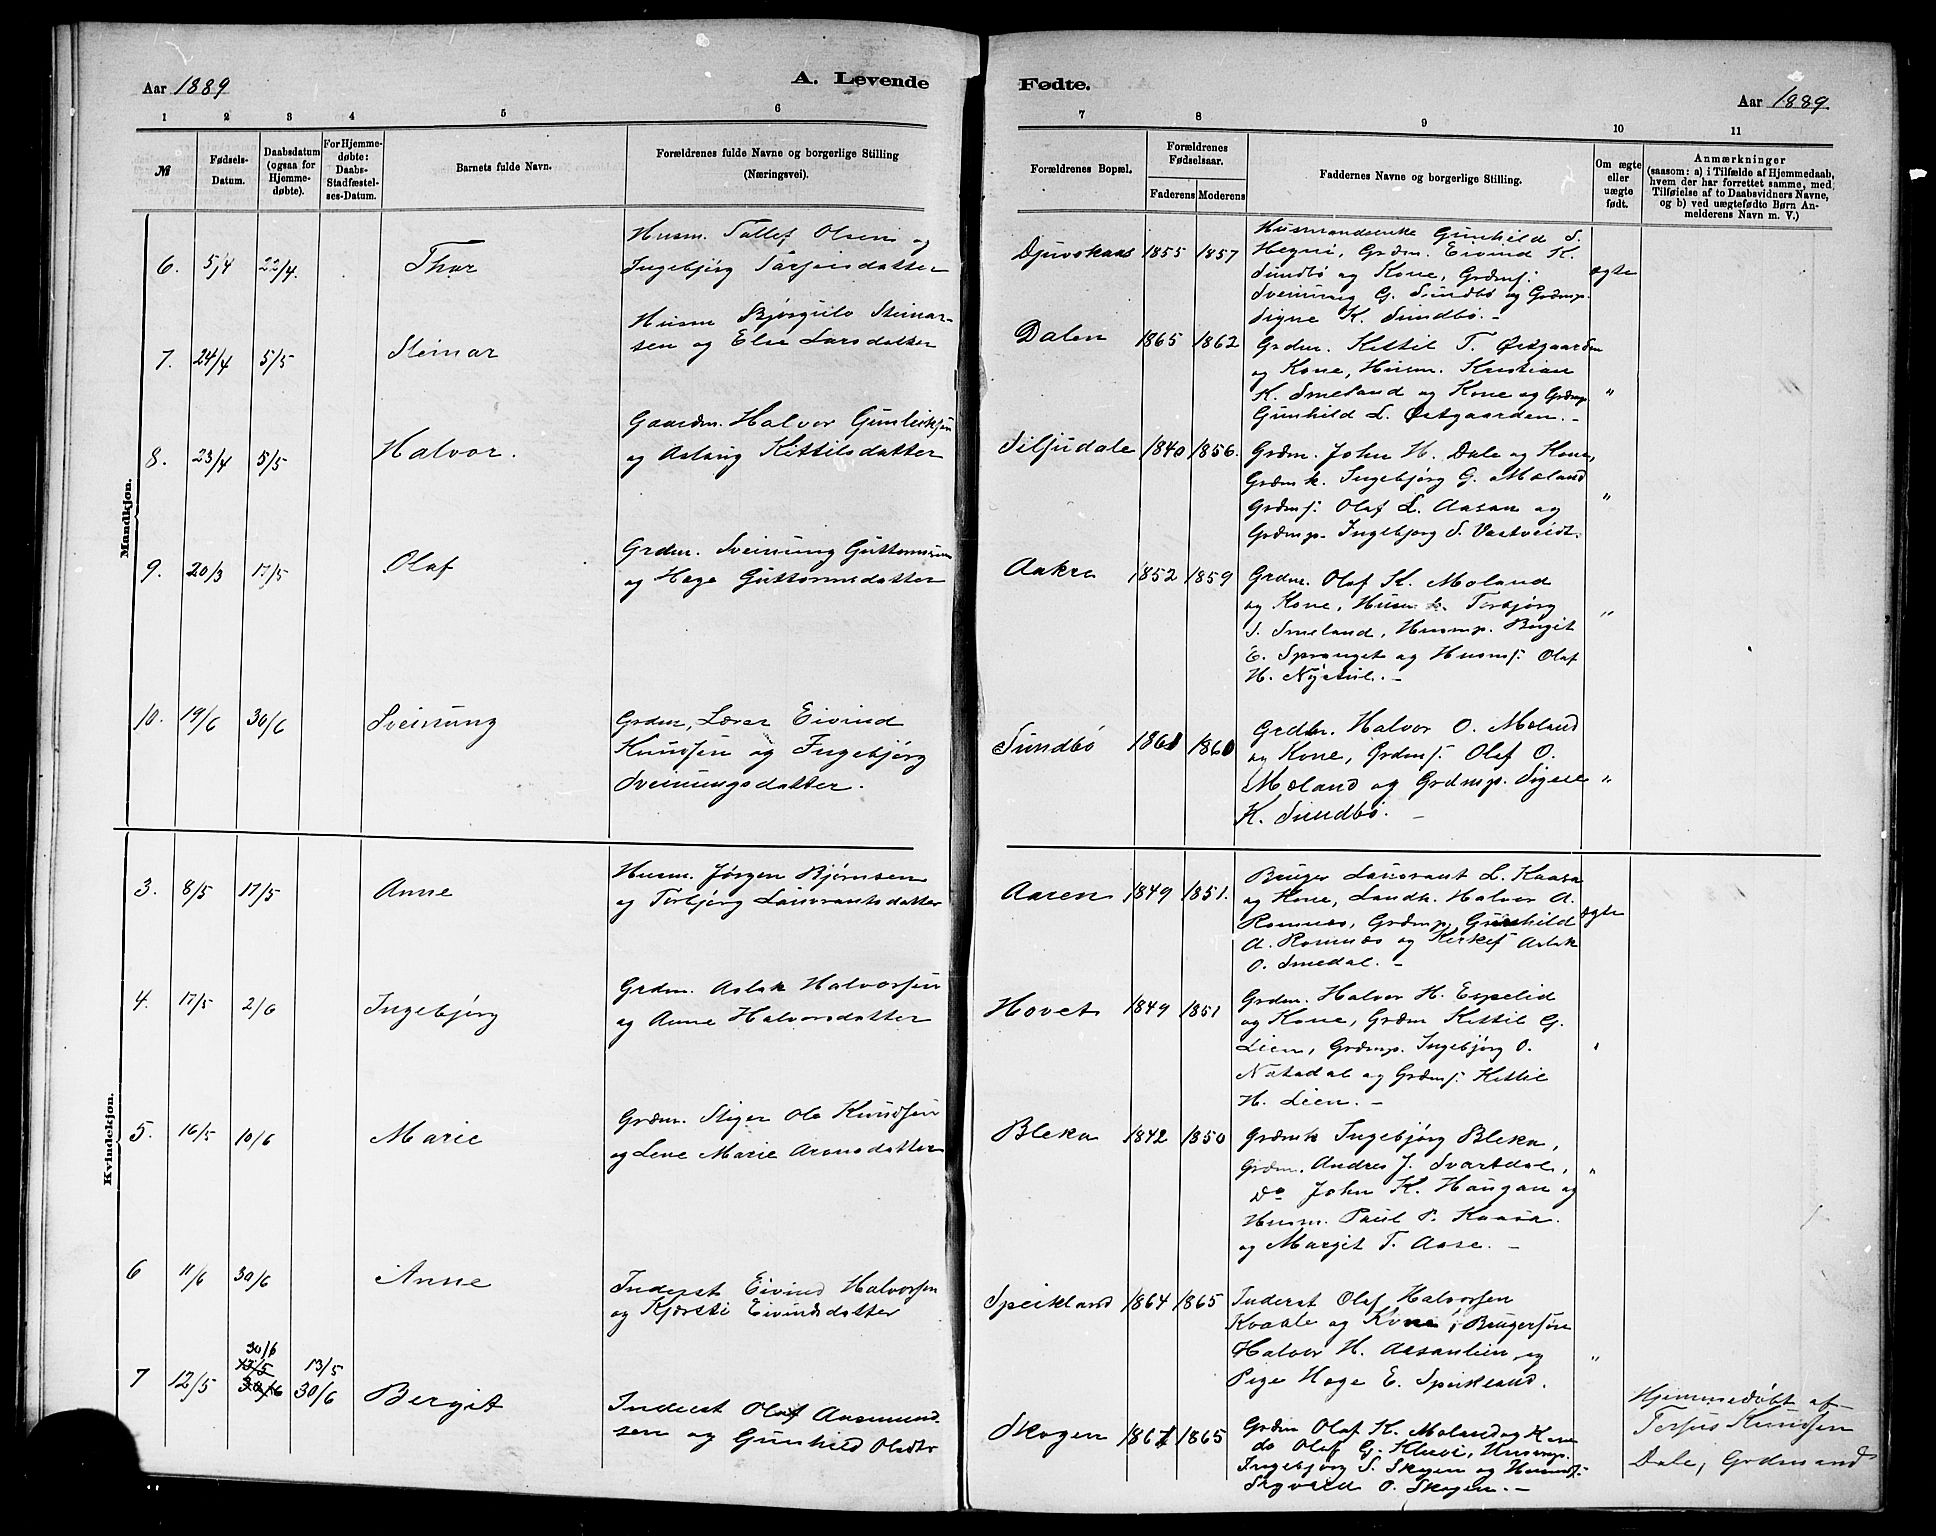 Aar 1889
A. Levende
Fødte.
Aar 1889.
1 2 3 4 5 6
7 8 9 10 11
№
Fødsels-
Datum.
Daabsdatum
(ogsaa for
Hjemme-
døbte).
For Hjemme-
døbte:
Daabs-
Stadfæstel-
ses-Datum.
Barnets fulde Navn.
Forældrenes fulde Navne og borgerlige Stilling
(Næringsvei).
Forældrenes Bopæl.
Forældrenes
Fødselsaar.
Faderens Moderens
Faddernes Navne og borgerlige Stilling.
Om ægte
eller
uægte
født.
Anmærkninger
(saasom: a) i Tilfælde af Hjemmedaab,
hvem der har forrettet samme, med
Tilføielse af to Daabsvidners Navne,
og b) ved uægtefødte Børn An-
melderens Navn m. V.)
Mandkjøn.
6. 5/4 22/4. Thor
Husm. Tallef Olsen og
Ingebjørg Tarjeisdatter
Djuvskaas 1855 1857
Husmandsenke Gunhild S.
Hegni, Grdm. Eivind K.
Sundbø og Kone, Grdmf.
Sveinung G. Sundbø og Grdmp.
Signe K. Sundbø. -
ægte
7. 24/4 5/5 Steinar
Husm Bjørgulv Steinar-
sen og Elie Larsdatter
Dalen 1865 1862
Grdm. Kittil T. Østgaarden
og Kone, Husm. Kristian
K. Smeland og Kone og Grdmp
Gunhild L. Østgaarden. -
"
8. 23/4 5/5 Halvor.
Gaardm. Halvor Gunleiksen
og Aslaug Kittilsdatter
Siljudale 1840 1856.
Grdm. John H. Dale og Kone,
Grdmk. Ingebjørg G. Moland
Grdmf. Olaf L. Aasan og
Grdmp. Ingebjørg S. Vastveidt.
"
9. 20/3 17/5 Olaf
Grdm. Sveinung Guttormsen
og Hege Guttormsdatter
Aakre 1852 1859
Grdm. Olaf K. Moland
og Kone, Husm k. Torbjørg
S. Smeland, Husmp. Bergit
E. Spranget og Husmf. Olaf
H. Nystul. -
"
10. 19/6 30/6 Sveinung
Grdm, Lærer Eivind
Knudsen og Ingebjørg
Sveinungsdatter.
Sundbø 1861 1860
Grdm. Halvor O. Moland
og Kone, Grdmf. Olaf O.
Moland og Grdmp. Signe
K. Sundbø. -
"
Kvindekjøn.
3. 8/5 17/5 Anne
Husm. Jørgen Bjørnsen
og Torbjørg Lauvrantsdatter
Aaren 1849 1851.
Bruger Lauvrant L. Kaasa
og Kone, Landh. Halvor A.
Romnæs, Grdmp. Gunhild
A. Romnæs og Kirkef Aslak
O. Smedal. -
ægte
4. 17/5 2/6 Ingebjørg
Grdm. Aslak Halvorsen
og Anne Halvorsdatter
Hovet 1849 1851
Grdm. Halvor H. Espelid
og Kone, Grdm Kittil G.
Lien, Grdmp. Ingebjørg O.
Natadal og Grdmf. Kittil
H. Lien. -
"
5. 16/5 10/6 Marie
Grdm. Steger Ole Knudsen
og Lene Marie Aronsdatter
Bleka 1842 1850
Grdmk Ingebjørg Bleka,
Grdm. Andres J. Svartdal,
Do John K. Haugan og
Husm. Paul P. Kaasa.
og Margit T. Aase. -
"
6 11/6 30/6 Anne
Inderst Eivind Halvorsen
og Kjersti Eivindsdatter
Speikland 1864 1865
Inderst Olaf Halvorsen
Kvaale og Kone, Brugersøn
Halvor H. Aasanlien og
Pige Hege E. Speikland.
"
7 12/5 30/6 13/5 30/6 13/5 30/6 Bergit
Inderst Olaf Aasmund-
sen og Gunhild Olsdtr
Skogen 1861 1865
Grdm Olaf K. Moland og Kone
do Olaf G. Kleivi, Husmp.
Ingebjørg S. Skogen og Husmf.
Sigvald O. Skogen. -
Hjemmedøbt af
Terjus Knudsen
Dale, Grdmand